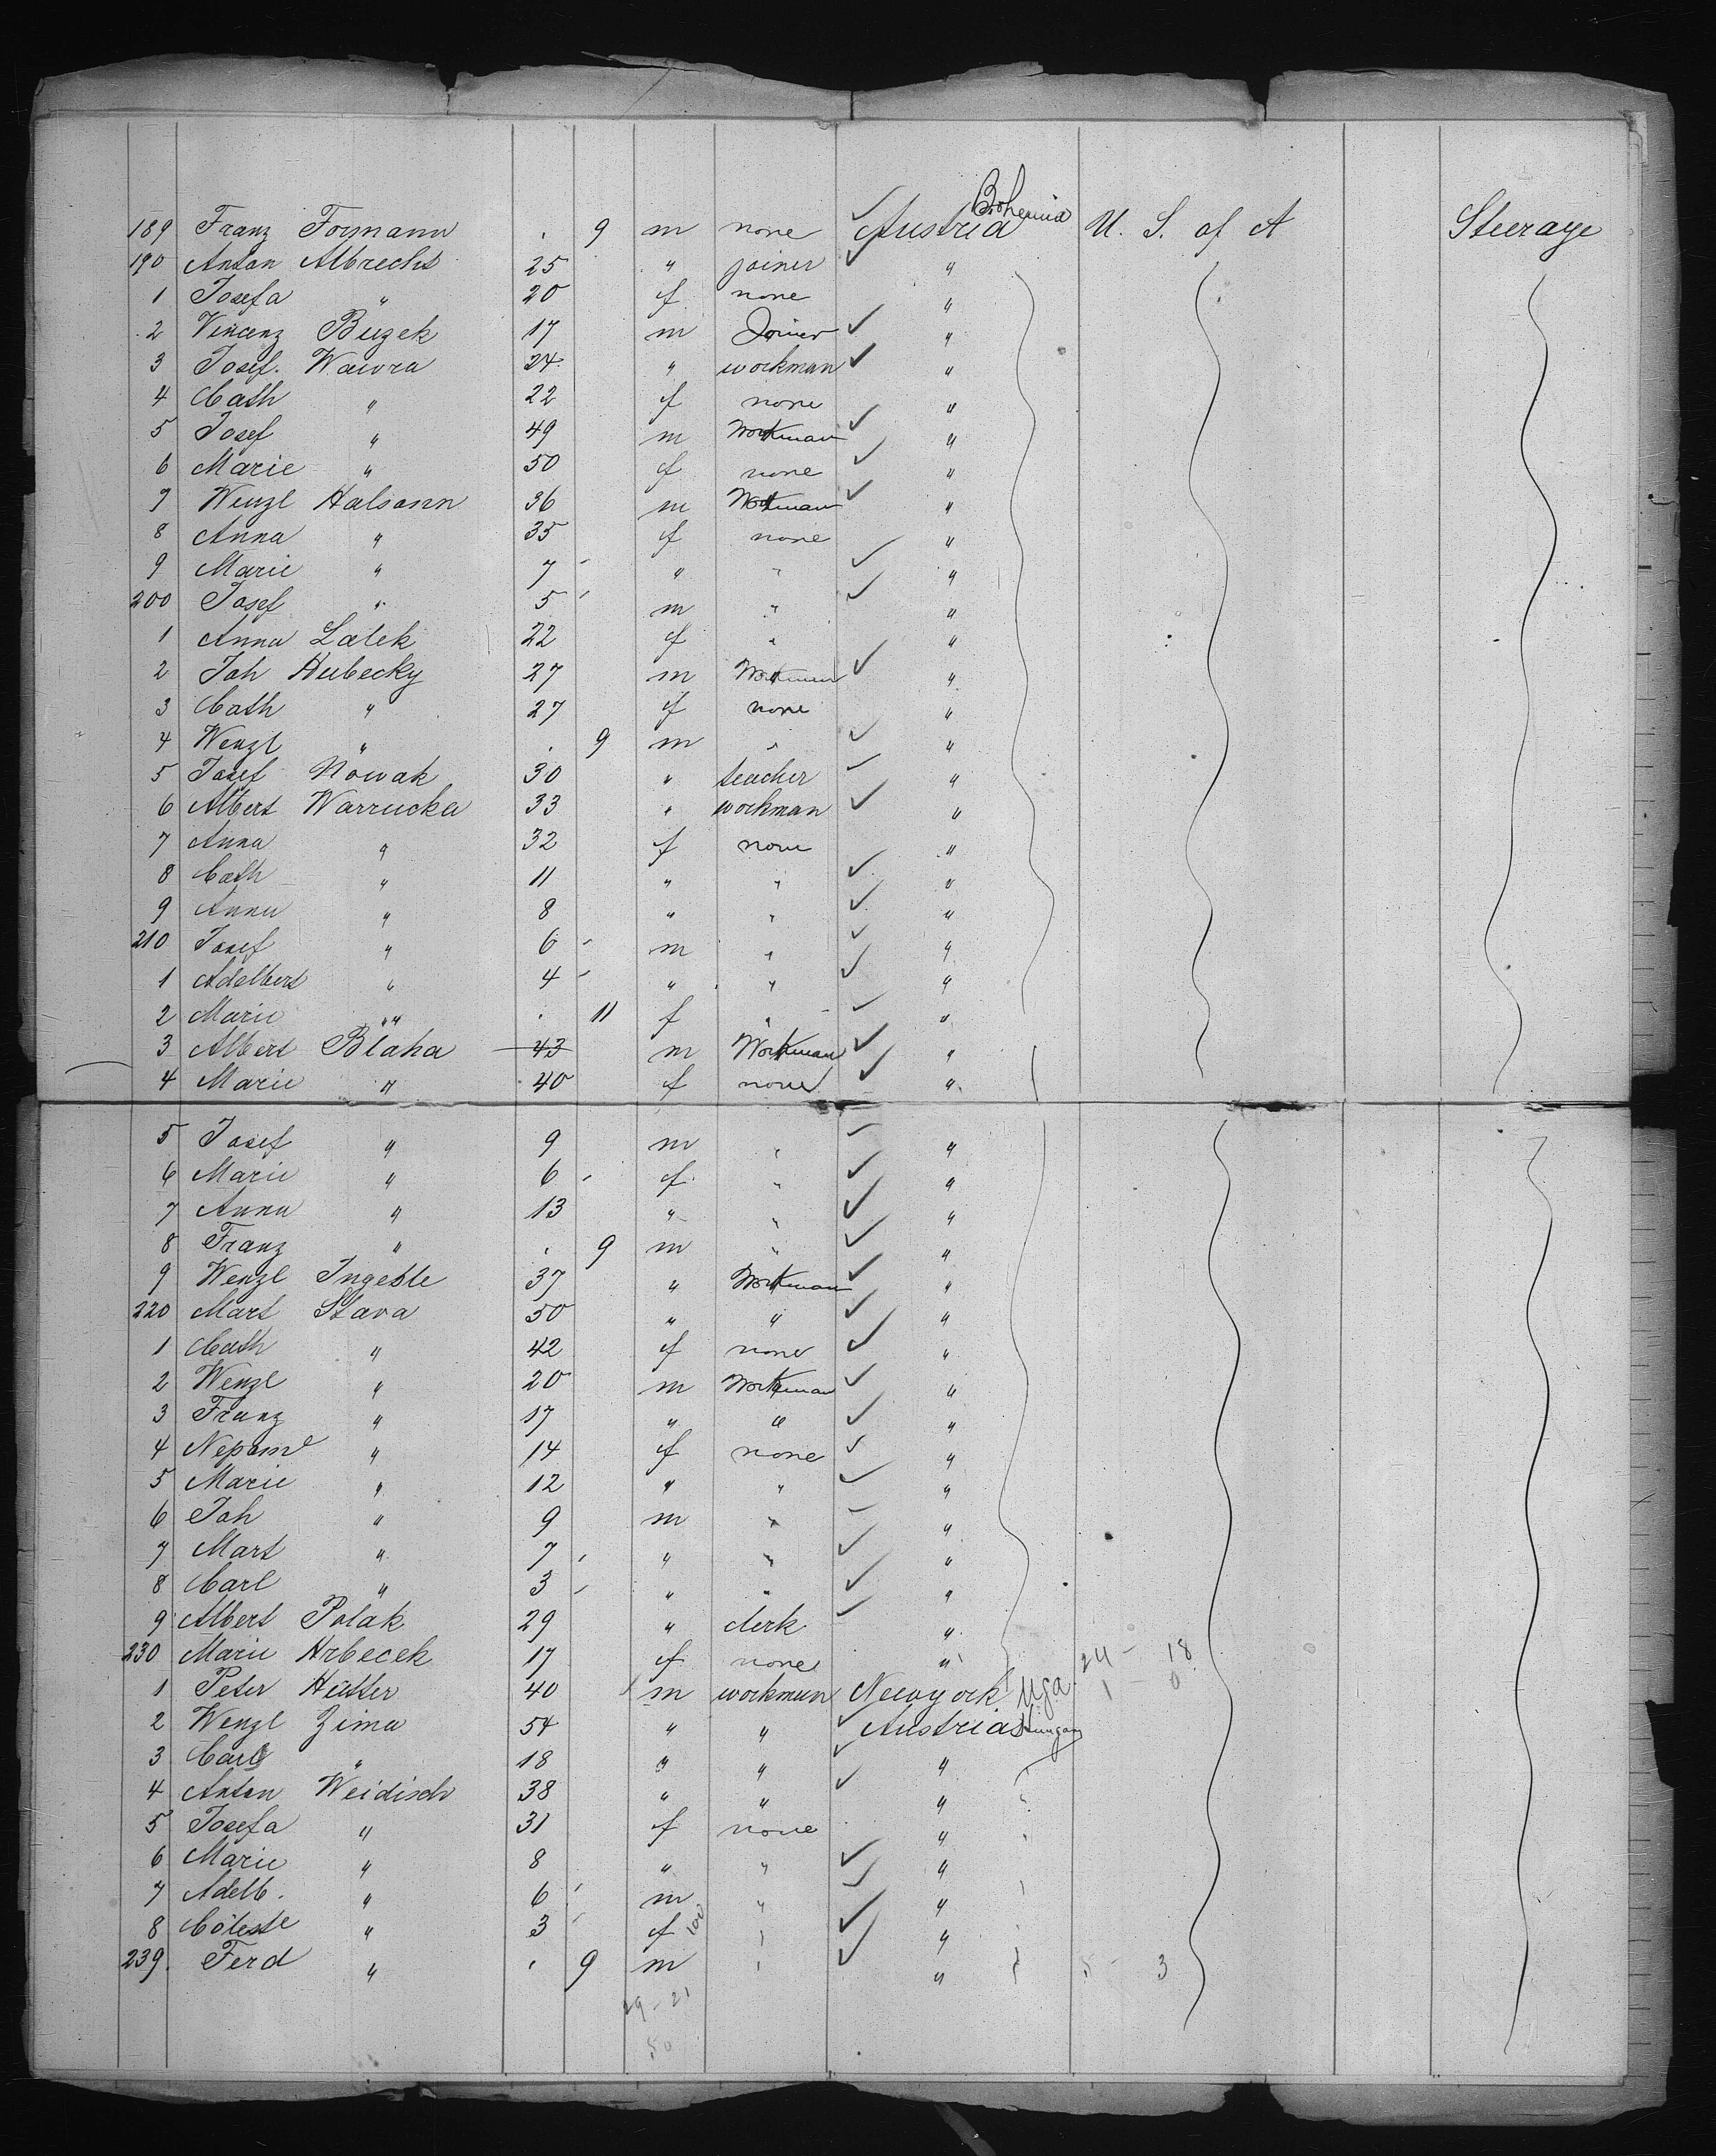 189 Franz Formann . 9 m none Austria Bohemia U. S. of A Steerage
190 Anton Albrecht 25 " joiner "
1 Josefa " 20 f none "
2 Vincenz Buzek 17 m Joiner "
3 Josef. Wawra 24 " workman "
4 Cath " 22 f none "
5 Josef " 49 m Workman "
6 Marie " 50 f none "
7 Wenzl Halsann 36 m Workman "
8 Anna " 35 f none "
9 Marie " 7 " " "
200 Josef " 5 m " "
1 Anna Lalek 22 f " "
2 Joh Hubecky 27 m Workman "
3 Cath " 27 f none "
4 Wenzl " . 9 m " "
5 Josef Nowak 30 " teacher "
6 Albert Warrucka 33 " workman "
7 Anna " 32 f none "
8 Cath " 11 " " "
9 Anna " 8 " " "
210 Josef " 6 m " "
1 Adelbert " 4 " " "
2 Marie " . 11 f " "
3 Albert Blaha 43 m Workman "
4 Marie " 40 f none "
5 Josef " 9 m " "
6 Marie " 6 f " "
7 Anna " 13 " " "
8 Franz " . 9 m " "
9 Wenzl 37 " Workman "
220 Mart Stava 50 " " "
1 Cath " 42 f none "
2 Wenzl " 20 m Workman "
3 Franz " 17 " " "
4 Nepom " 14 f none "
5 Marie " 12 " " "
6 Joh " 9 m " "
7 Mart " 7 " " "
8 Carl " 3 " " "
9 Albert Polak 29 " clerk "
230 Marie Hrbecek 17 f none " 24 - 18
1 Peter Hütter 40 m workman Newyork 1 - 0
2 Wenzl Zima 54 " " Austria Hungary
3 Carl " 18 " " "
4 Anton Weidisch 38 " " "
5 Josefa " 31 f none "
6 Marie " 8 " " "
7 Adelb. " 6 m " "
8 " 3 f 100 " "
239. Ferd " . 9 m " " 5 - 3
29 - 21
50